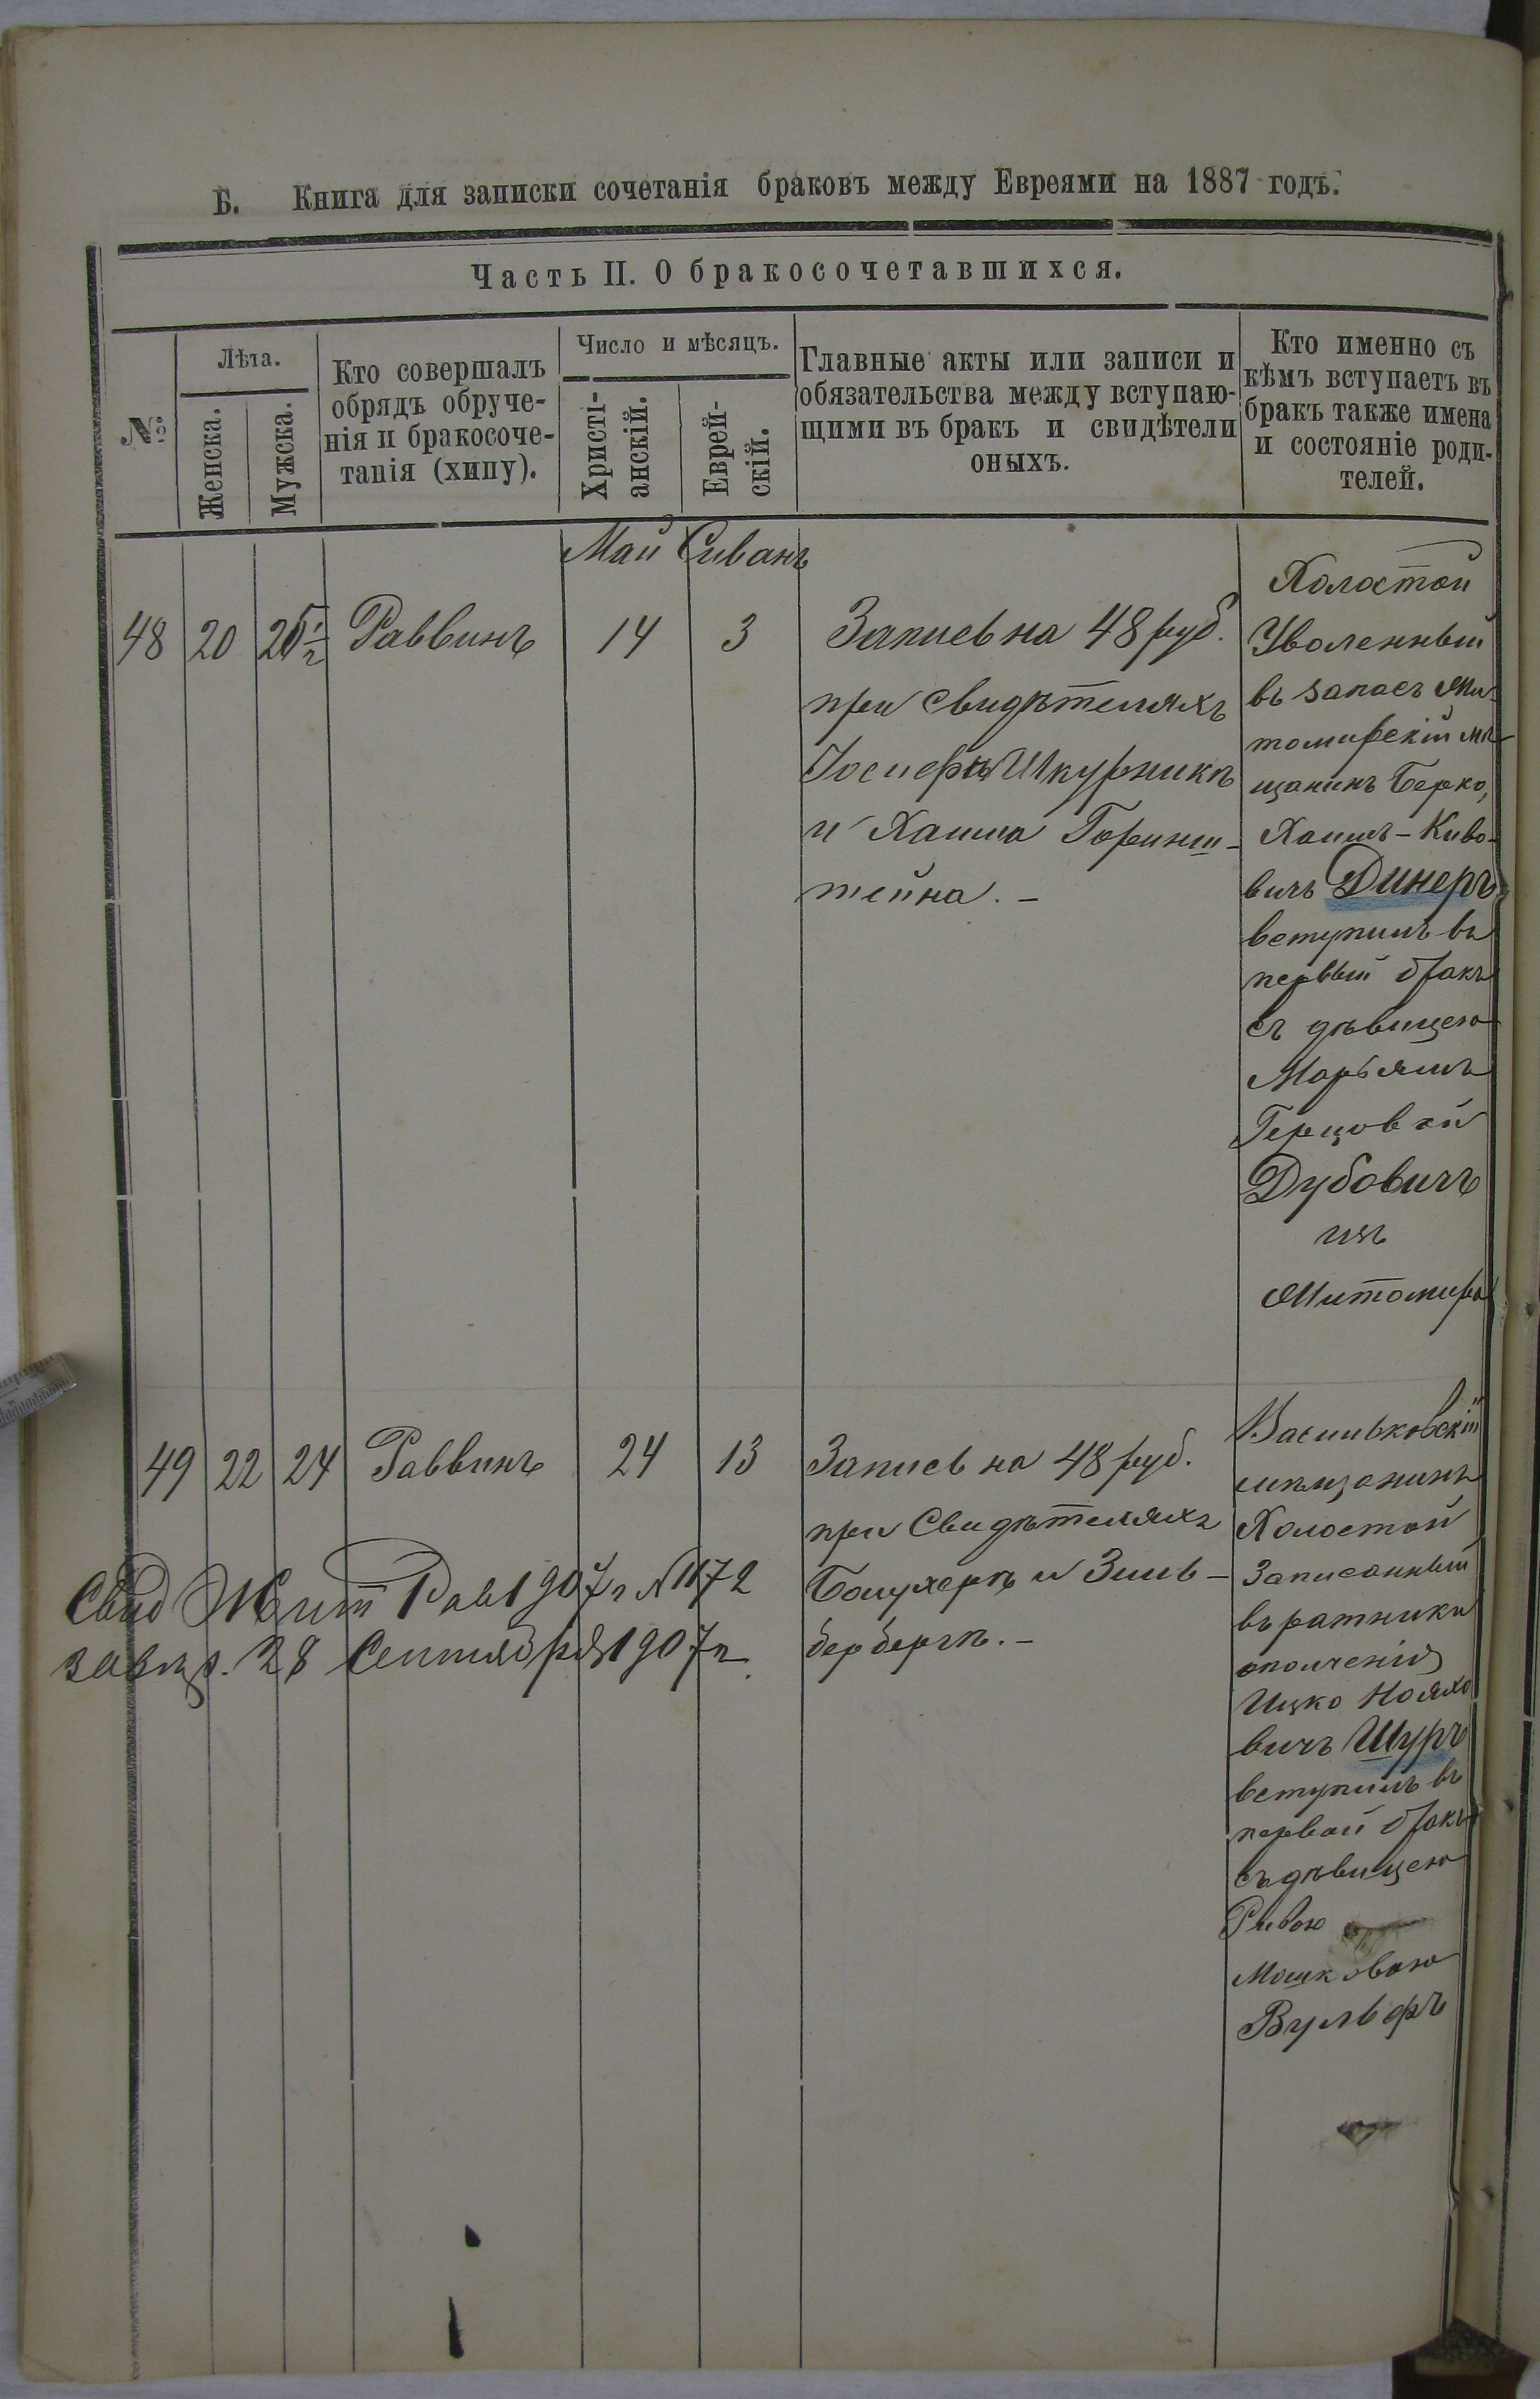 Б. Книга для записки сочетанія браковъ между Евреями на 1887 годъ.
Часть II. О бракосочетавшихся.
№
Лѣта.
Женска.
Мужска.
Кто совершалъ
обрядъ обруче-
нія и бракосоче-
танія (хипу).
Число и мѣсяцъ.
Христі-
анскій.
Еврей-
скій.
Главные акты или записи и
обязательства между вступаю-
щими въ бракъ и свидѣтели
оныхъ.
Кто именно съ
кѣмъ вступаетъ въ
бракъ также имена
и состояніе роди-
телей.
Май Сиванъ
48 20 25½ Раввинъ 14 3
Запись на 48 руб.
при свидѣтеляхъ
Іосифѣ Шкурникѣ
и Хаима Горинш-
тейна. -
Холостой
Уволенный
въ запасъ Жи-
томирскій мѣ-
щанинъ Берко,
Хаимъ-Киво-
вичъ Динеръ
вступилъ въ
первый бракъ
съ дѣвицею
Марьямъ
Герцовой
Дубовичъ
изъ
Житомира
49 22 24 Раввинъ 24 13
Запись на 48 руб.
при Свидѣтеляхъ
Боцхерѣ и Зиль-
бербергѣ. -
Васильковскій
мѣщанинъ
Холостой
Записанный
въ ратники
ополченія
Ицко Нояхо
вичъ Шуръ
вступилъ въ
первой бракъ
съ дѣвицею
Ривою
Мошковою
Вульфъ
Свид Жит Рав 1907 г № 1172
28 Сентября 1907 г.